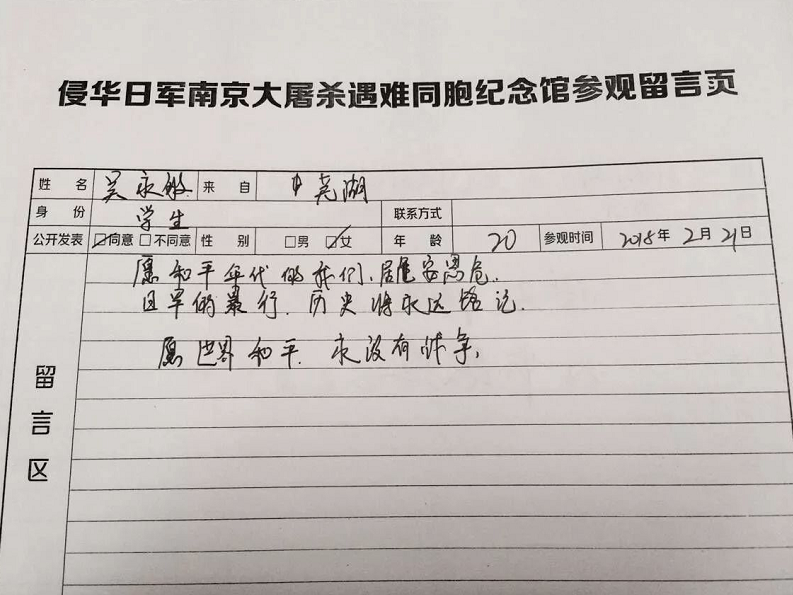 侵华日军南京大屠杀遇难同胞纪念馆参观留言页
姓 名 吴永敏 来 自 芜湖
身 份 学生 联系方式
公开发表 ☑同意 □不同意 性 别 □男 ☑女 年 龄 20 参观时间 2018年2月21日
愿和平年代的我们、居危安思危.
日军的暴行.历史将永远铭记.
愿世界和平.永没有战争,
留言区